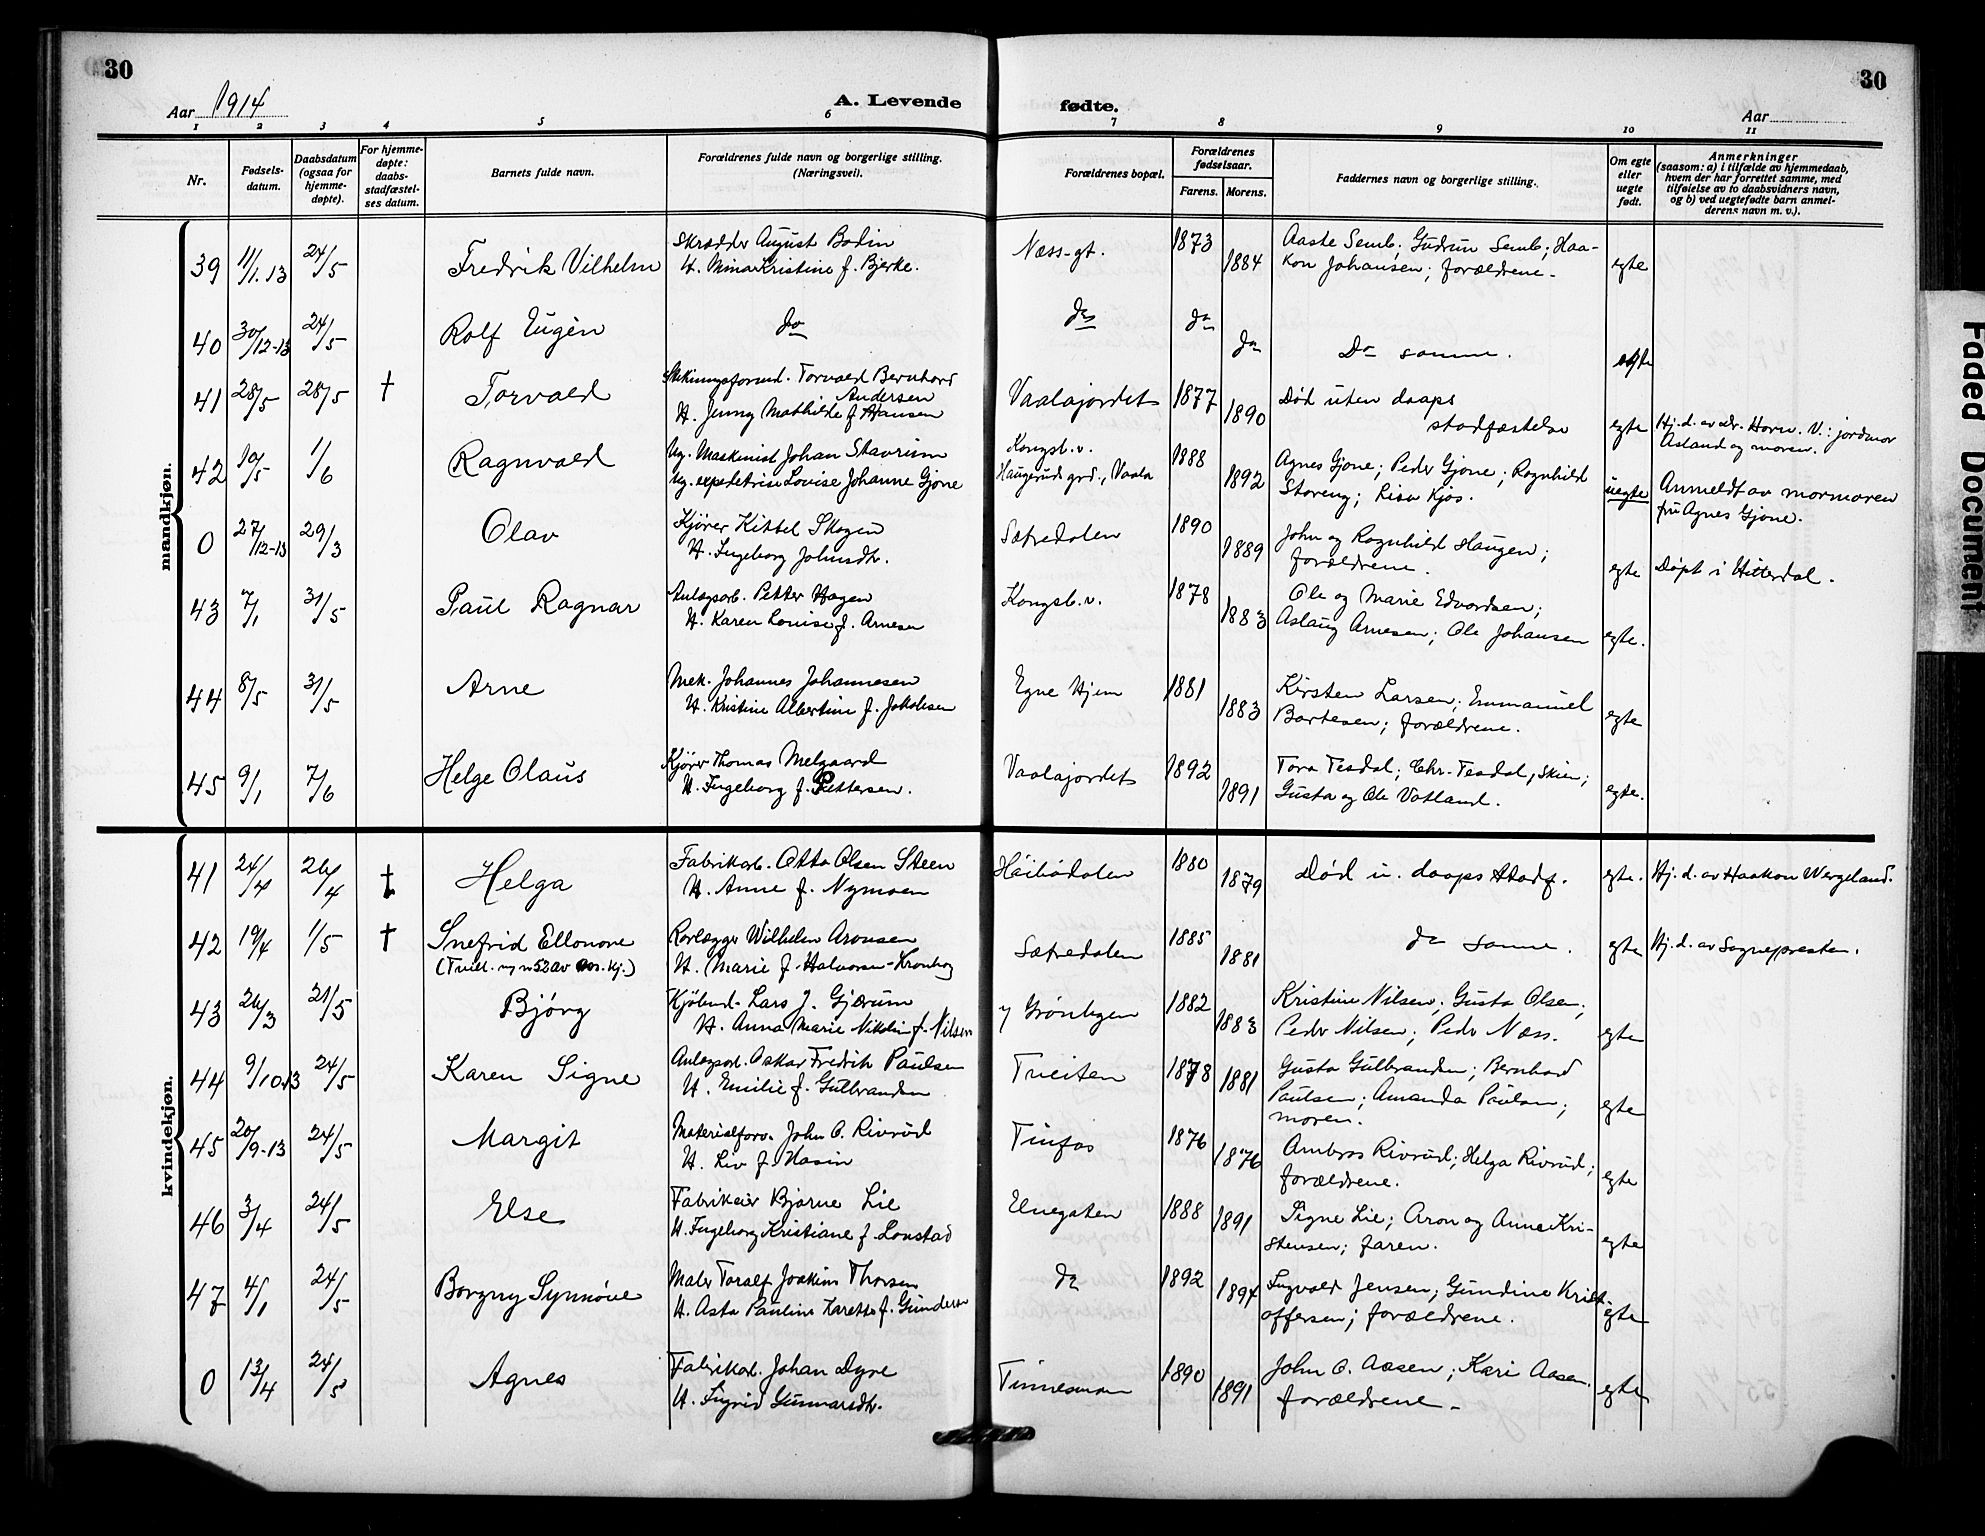 30
30
Aar 1914
A. Levende
fødte.
Aar
1 2 3 4 5 6 7 8 9 10 11
Nr.
Fødsels-
datum.
Daabsdatum
(ogsaa for
hjemme-
døpte).
For hjemme-
døpte:
daabs-
stadfæstel-
ses datum.
Barnets fulde navn.
Forældrenes fulde navn og borgerlige stilling.
(Næringsvei).
Forældrenes bopæl.
Forældrenes
fødselsaar.
Farens. Morens.
Faddernes navn og borgerlige stilling.
Om egte
eller
uegte
født.
Anmerkninger
(saasom: a) i tilfælde av hjemmedaab,
hvem der har forrettet samme, med
tilføielse av to daabsvidners navn,
og b) ved uegtefødte barn anmel-
derens navn m. v.).
mandkjøn.
39 11/1.13 24/5 Fredrik Vilhelm
Skrædder August Bodin
H. Mina Kristine f. Bjerke.
Næss-gt. 1873 1884
Aaste Semb; Gudrun Semb; Haa-
kon Johansen; forældrene.
egte
40 30/12-13 24/5 Rolf Eugén do do do do
Do samme. egte
41 28/5 28/5 † Torvald
Torvald Bernhard
Andersen
H. Jenny Mathilde f. Hansen
Vaalajordet 1877 1890
Død uten daaps
stadfæstelse
egte
Hj. d. av dr. Horn. V.: jordmor
Asland og moren.
42 10/5 1/6 Ragnvald
Ug. Maskinist Johan Stavrum
Ug. expeditrise Lovise Johanne Gjone
Kongsb. v.
Haugerud grd., Vaala
1888 1892
Agnes Gjone; Peder Gjone; Ragnhild
Storeng; Kjos.
uegte
Anmeldt av mormoren
fru Agnes Gjone.
0 27/12-13 29/3 Olav
Kjører Kittel Skogen
H. Ingeborg Johnsdtr.
Sætredalen 1890 1889
John og Ragnhild Haugen;
forældrene.
egte Døpt i Hitterdal.
43 7/1 31/5 Paul Ragnar
Anlægsarb. Petter Hagen
H. Karen Louise f. Arnesen
Kongsb. v. 1878 1883
Ole og Marie Edvardsen;
Aslaug Arnesen; Ole Johansen
egte.
44 8/5 31/5 Arne
Mek. Johannes Johannesen
H. Kristine Albertine f. Jakobsen
Egne Hjem 1881 1883
Kirsten Larsen; Emmanuel
Bartesen; forældrene.
egte
45 9/1 7/6 Helge Olaus
Kjører Thomas Melgaard
H. Ingeborg f. Pettersen.
Vaalajordet 1892 1891
Tora Tesdal; Chr. Tesdal, Skien;
Gusta og Ole Vatland.
egte.
kvindekjøn.
41 24/4 26/4 † Helga
Fabrikarb. Otto Olsen Steen
H. Anne f. Nymoen
Háibódalen 1880 1879
Død u. daaps stadf.
egte. Hj. d. av Haakon Wergeland.
42 19/4 1/5 † Snefrid Ellonore
(Tvill. m. n 52 av m. kj.)
Rørlægger Wilhelm Aronsen
H. Marie f. Halvorsen-Kronborg
Sætredalen 1885 1881
do samme.
egte Hj. d. av Sognepresten.
43 26/3 21/5 Bjørg
Kjøbmd. Lars J. Gjærum
H. Anna Marie Nikolin f. Nilsen
Grønbyen 1882 1883
Kristine Nilsen; Gusta Olsen;
Peder Nilsen; Peder Næss.
egte
44 9/10.13 24/5 Karen Signe
Anlægsarb. Oskar Fredrik Paulsen
H. Emilie f. Gulbrandsen
Tveiten 1878 1881
Gusta Gulbrandsen; Bernhard
Paulsen; Amanda Paulsen;
moren.
egte
45 20/9-13 24/5 Margit
Materialforv. John O. Rivrud
H. Liv f. Hasin
Tinfos 1876 1876
Ambros Rivrud; Helga Rivrud;
forældrene.
egte
46 3/4 24/5 Else
Fabrikeier Bjarne Lie
H. Ingeborg Kristiane f. Lonstad
Enegaten 1888 1891
Signe Lie; Aron og Anna Kri-
stensen; faren.
egte
47 4/1 24/5 Borgny Synnöve
Maler Toralf Joakim Thorsen
H. Asta Pauline Karette f. Gundersen
do 1892 1894
Ingvald Jensen; Gundine Krist-
offersen; forældrene.
egte
0 13/4 24/5 Agnes
Fabrikarb. Johan Dyre
H. Sigrid Gunnarsdtr.
Tinnesmoen 1890 1891
John O. Aasen; Kari Aasen.
forældrene.
egte
Faded Document